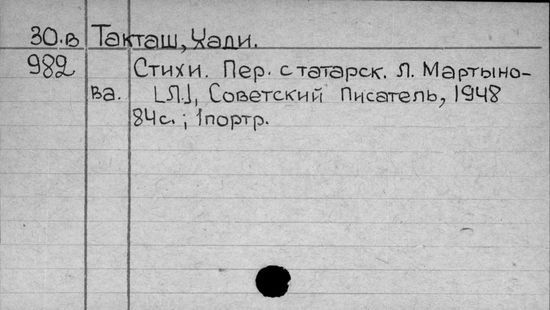 30.в Такташ, Хади.
982 Стихи. Пер. с татарск. Л. Мартыно-
ва. [Л.], Советский Писатель, 1948
84с.; 1 портр.